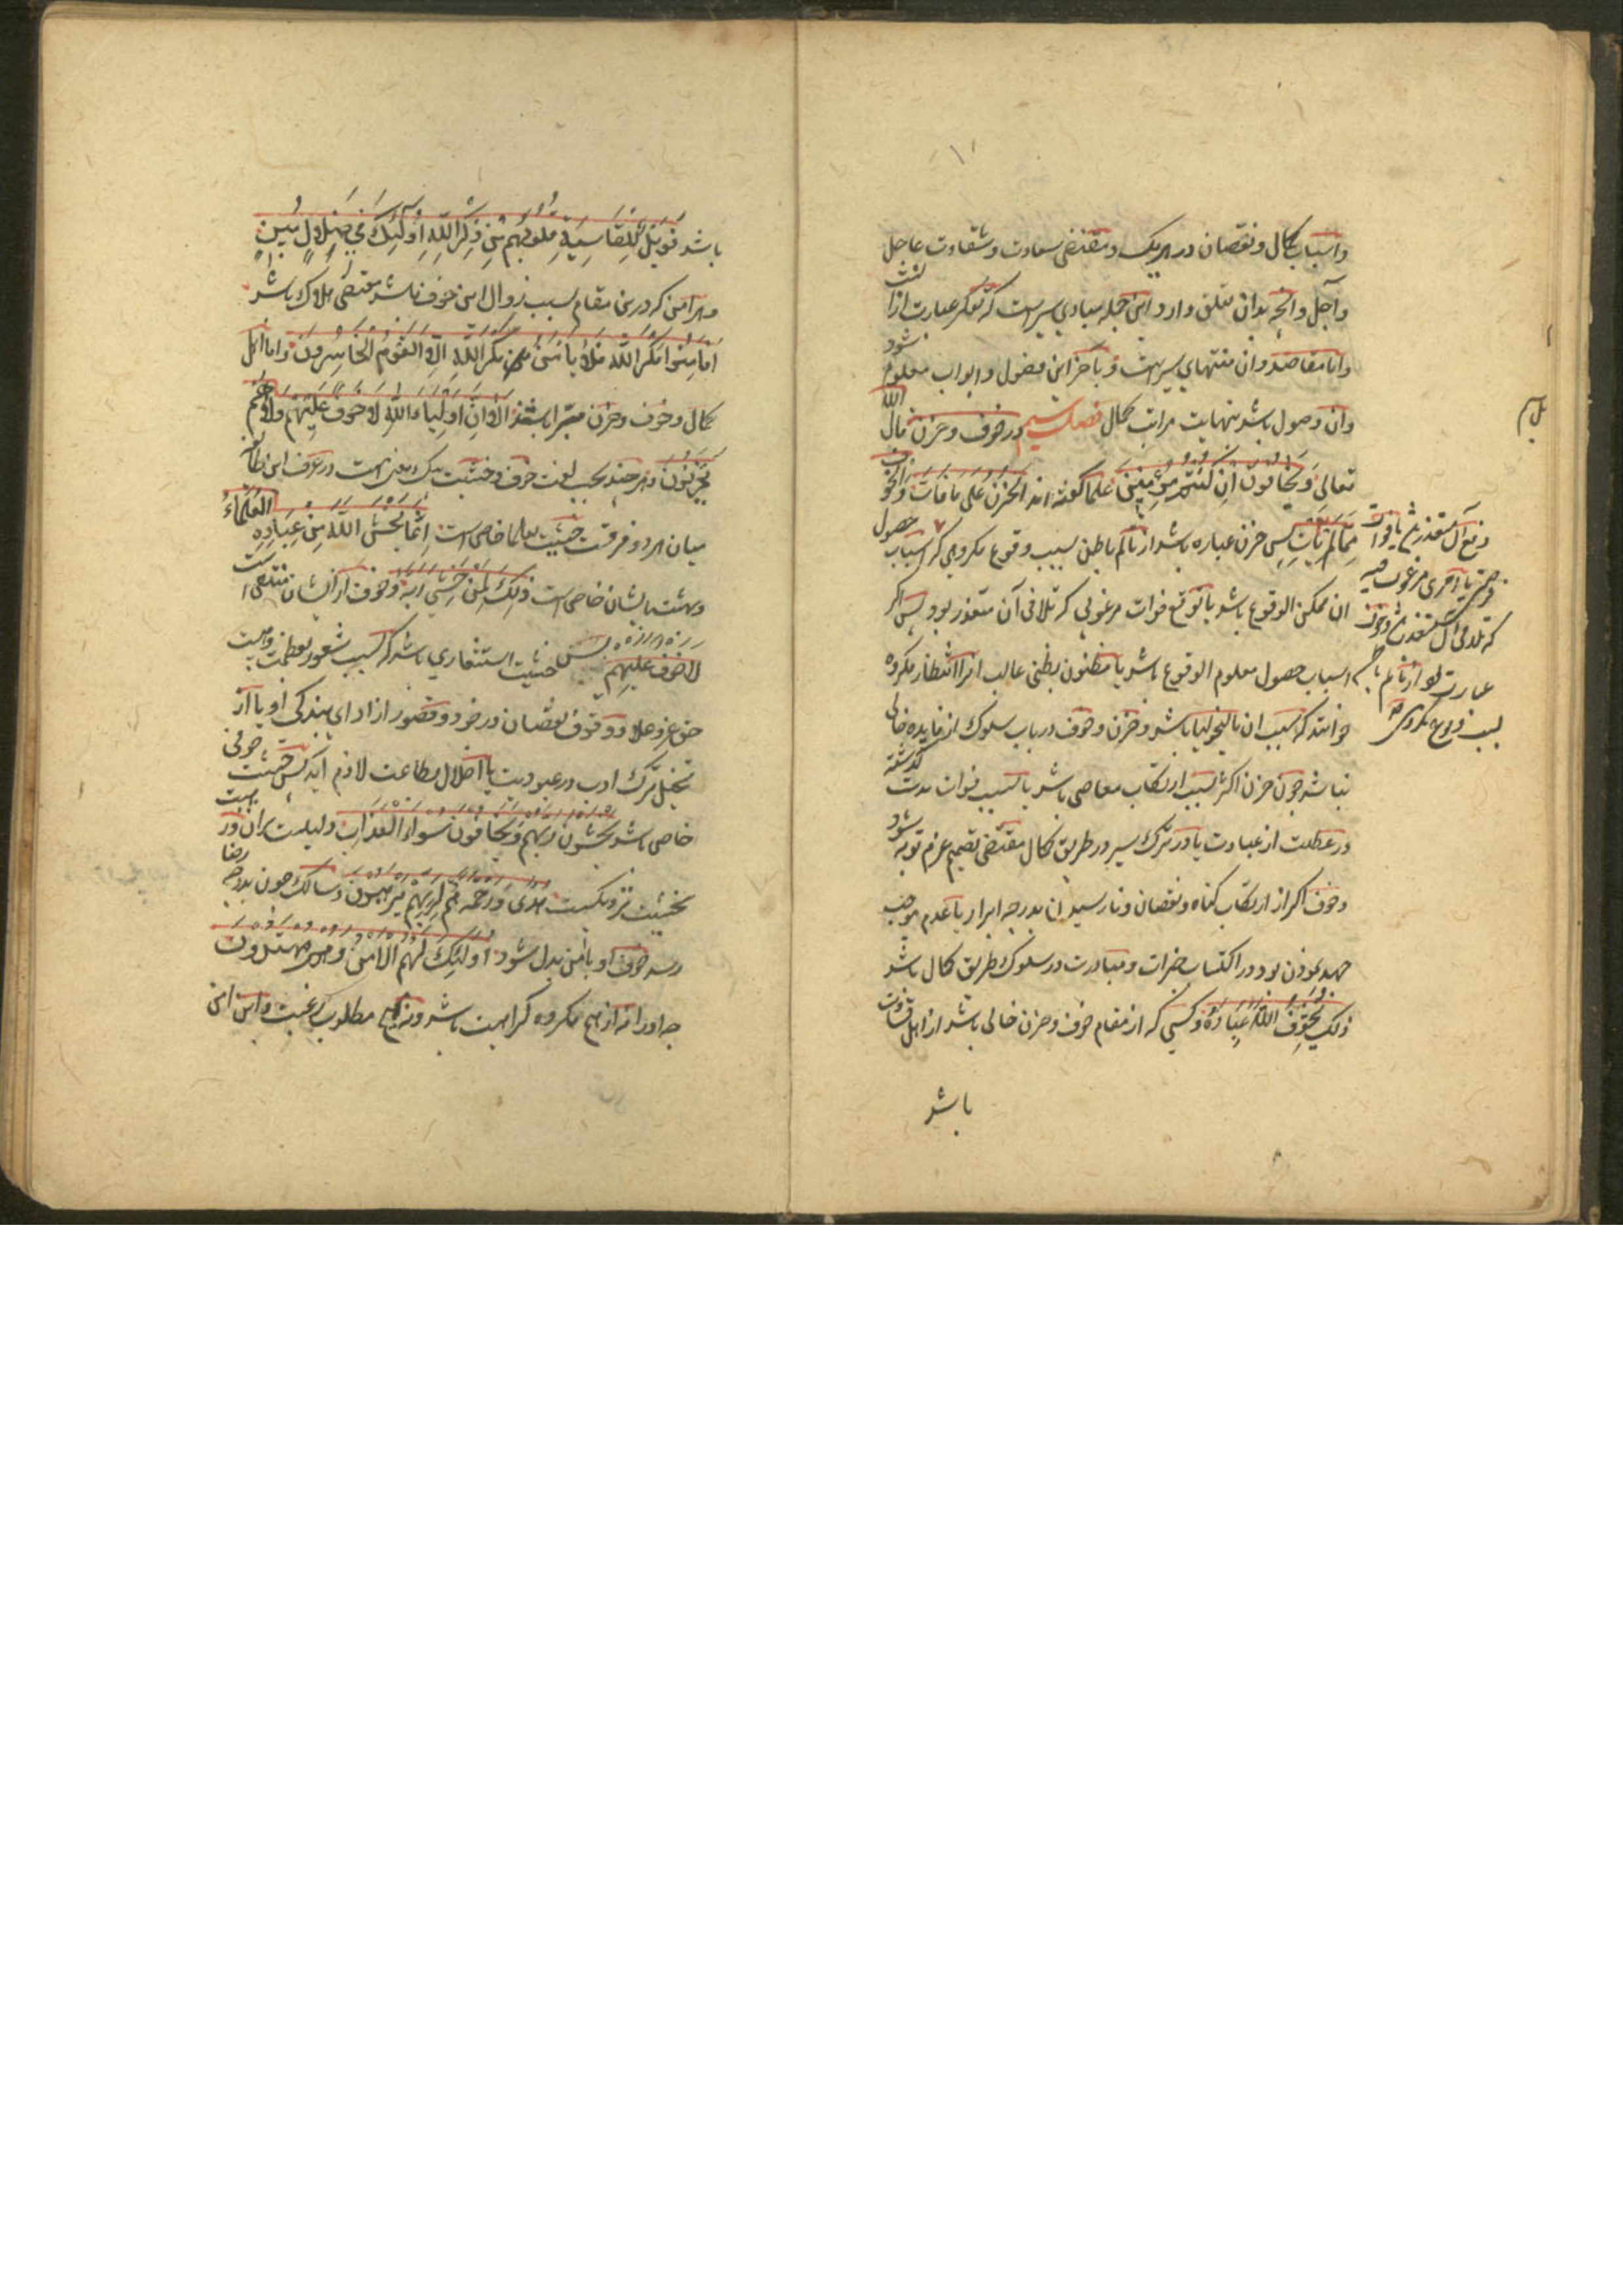 واسباب کمال ونقصان در هریک و مقتضی سعادت وشقاوت عاجل
وآجل وانچه بدان تعلق دارد این جمله مبادی سیر است که تفکر عبارت ازانست
واما مقاصد وان منتهای سیر است و باخر این فصول وابواب معلوم شود
وان وصول باشد بنهایت مراتب کمال فصل سیم در خوف وحزن قال الله
تعالی وَخَافُونِ اِنْ كُنْتُمْ مُؤْمِنِينَ علما گفته اند الحزن علی ما فات والخوف
مما لم یأت پس حزن عباره باشد از تألم باطن بسبب وقوع مکروهی که اسباب حصول
ان ممکن الوقوع باشد یا توقع فوات مرغوبی که تلافی آن متعذر بود پس اگر
اسباب حصول معلوم الوقوع باشد یا مظنون بظنی غالب انرا انتظار مکروه
خوانند که سبب ان مالیخولیا باشد وحزن وخوف در باب سلوک از فایده خالی
نباشد چون حزن اکثر بسبب ارتکاب معاصی باشد یا بسبب فوات مدت گذشته
در عطلت از عبادت یا در ترک سیر در طریق کمال مقتضی تصمیم عزم توبه شود
وخوف اگر از ارتکاب گناه ونقصان ونارسیدن بدرجه ابرار باشد موجب
جهد نمودن بود در اکتساب خیرات ومبادرت در سلوک طریق کمال باشد
ذلک یخوف الله عباده وکسی که از مقام خوف وحزن خالی باشد از اهل قساوت
باشد
دفع آن متعذر باشد یا فوات
فرصتی یا امری مرغوب فیه
که تلافی آن متعذر باشد وخوف
عبارت بود از تألم باطن
بسبب وقوع مکروهی که
باشد فَوَيْلٌ لِلْقَاسِيَةِ قُلُوبُهُمْ مِنْ ذِكْرِ اللّٰهِ اُولٰئِكَ فِي ضَلَالٍ مُبِينٍ
وهر امن که درین مقام بسبب زوال این خوف باشد مقتضی هلاک باشد
اَفَاَمِنُوا مَكْرَ اللّٰهِ فَلَا يَأْمَنُ مَكْرَ اللّٰهِ اِلَّا الْقَوْمُ الْخَاسِرُونَ واما اهل
کمال وخوف وحزن مبرا باشند اَلَا اِنَّ اَوْلِيَاءَ اللّٰهِ لَا خَوْفٌ عَلَيْهِمْ وَلَا هُمْ
يَحْزَنُونَ وهر چند بحسب لغت خوف وخشیت بیک معنی است در عرف این طایفه
میان هر دو فرقست خشیت بعلما خاص است اِنَّمَا يَخْشَى اللّٰهَ مِنْ عِبَادِهِ الْعُلَمَاءُ
وبهشت بایشان خاص است ذٰلِكَ لِمَنْ خَشِيَ رَبَّهُ وخوف از ایشان منتفی است
لا خوف علیهم پس خشیت استشعاری باشد که بسبب شعور بعظمت وهیبت
حق عز وعلا ووقوف بنقصان در خود وقصور از ادای بندگی او یا از
تخیل ترک ادب در عبودیت یا اخلال بطاعت لازم اید پس خشیت خوفی
خاص باشد یخشون ربهم ویخافون سوء العذاب دلیلست بران ورهبت
بخشیت نزدیکست هدی ورحمة للذین هم لربهم یرهبون وسالک چون بدرجه رضا
رسد خوف او بامن بدل شود اولئک لهم الامن وهم مهتدون
چه اورا نه از هیچ مکروه کراهیت باشد ونه بهیچ مطلوب رغبت واین امن